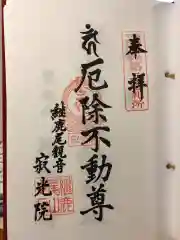 奉拝
厄除不動尊
継鹿尾観音
寂光院